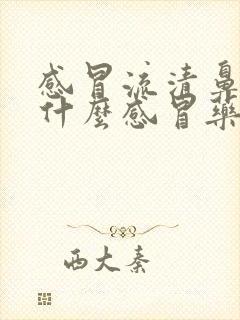 感冒流清鼻
什麼感冒藥
西大秦